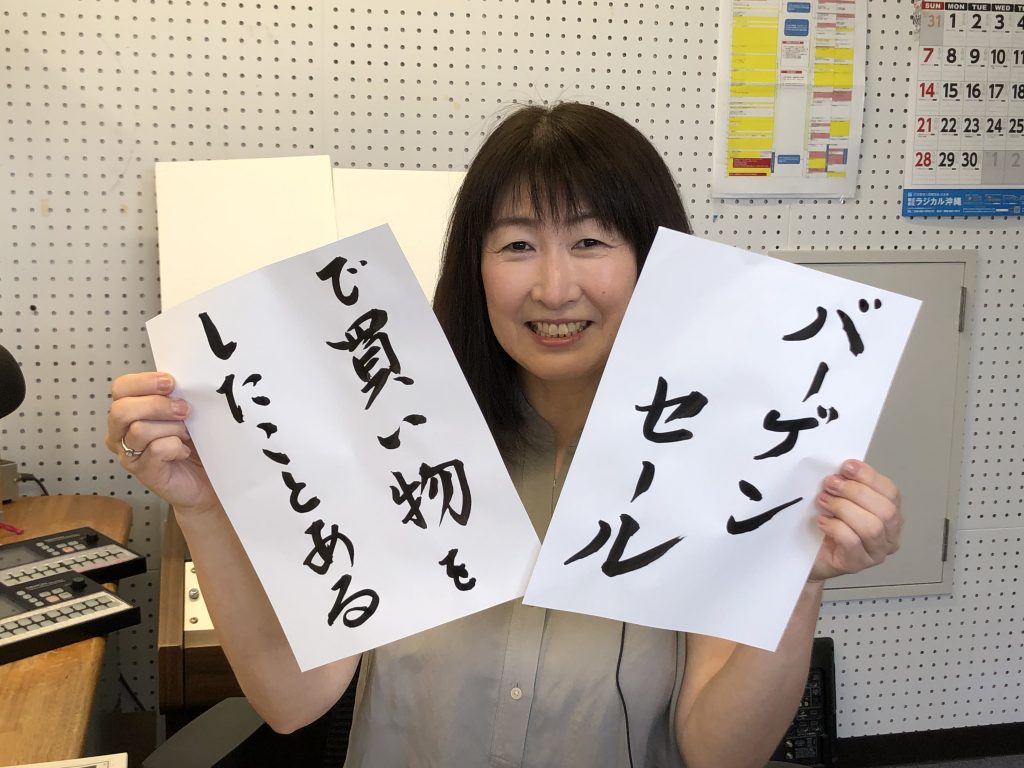 バーゲン
セール
で買い物を
したことある
SUN MON TUE WED
31 1 2 3 4
7 8 9 10 11
14 15 16 17 18
21 22 23 24 25
28 29 30 1 2
ラジカル沖縄